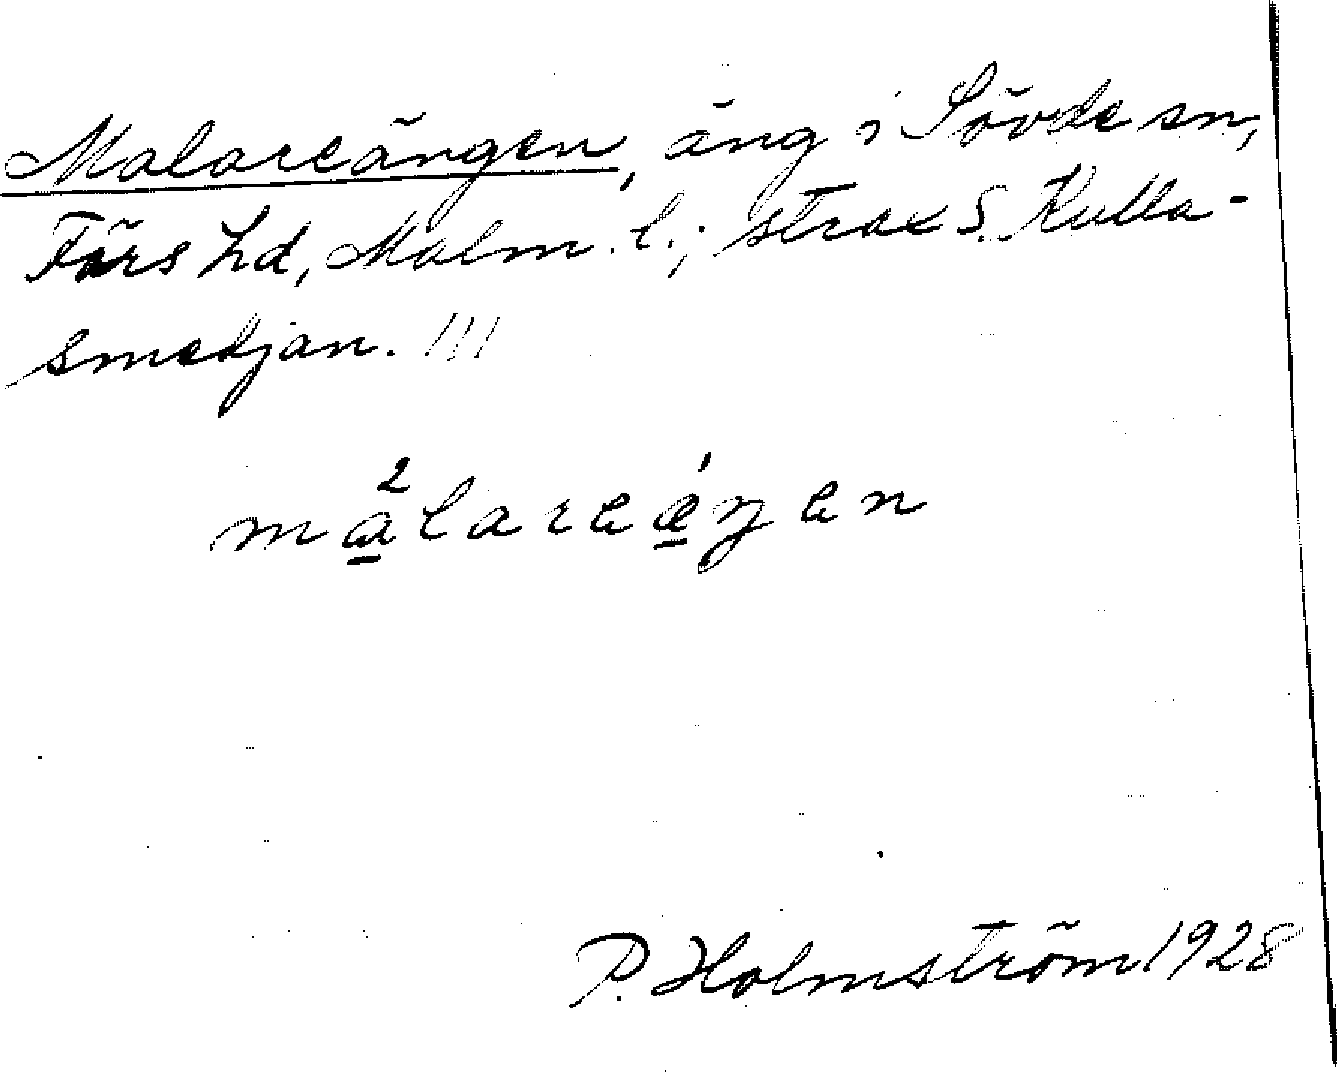 Malareängen, äng i Sövde sn,
Färs hd, Malm. l.; strax S. Kulla-
smedjan. !!!
ma̲²lareǽ̲ŋen
P. Holmström 1928